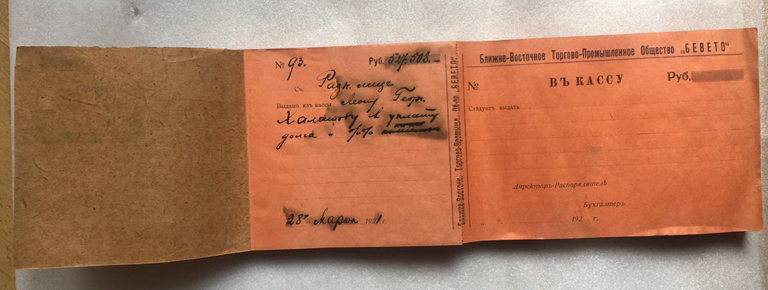 № 93. Руб. 527.538.–
Сч. Разн. лицъ
Выдано изъ кассы
Халатову в уплату
долга и %%
28го Марта 1921 г.
Ближне-Восточн. Торгово-Промышл. Об-во „БЕВЕТО"
Ближне-Восточное Торгово-Промышленное Общество „БЕВЕТО"
№ ВЪ КАССУ Руб.
Слѣдуетъ выдать
Директоръ-Распорядитель
Бухгалтеръ
192 г.